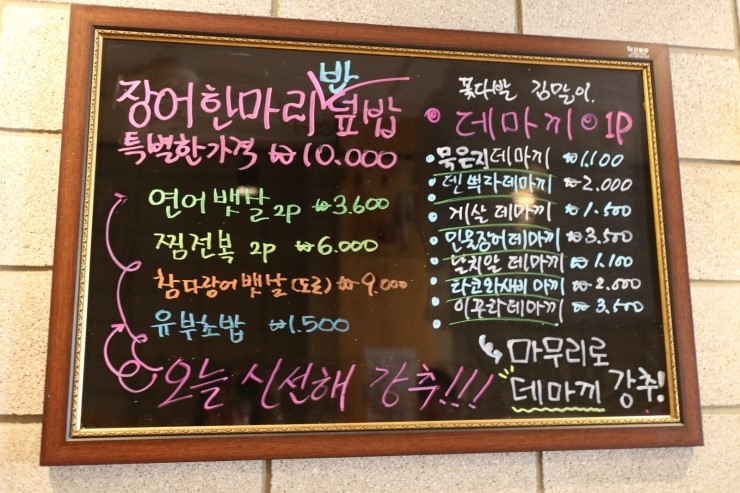 장어한마리반덮밥
특별한가격 ₩10.000
연어뱃살 2P ₩3.600
찜전복 2P ₩6.000
참다랑어뱃살(도로) ₩9.000
유부초밥 ₩1.500
오늘 신선해 강추!!!
꽃다발 김말이.
데마끼 1P
묵은지데마끼 ₩1.100
덴뿌라데마끼 ₩2.000
게살 데마끼 ₩1.500
민물장어데마끼 ₩3.500
날치알 데마끼 ₩1.100
타코와사비마끼 ₩2.000
이꾸라데마끼 ₩3.500
마무리로
데마끼 강추!